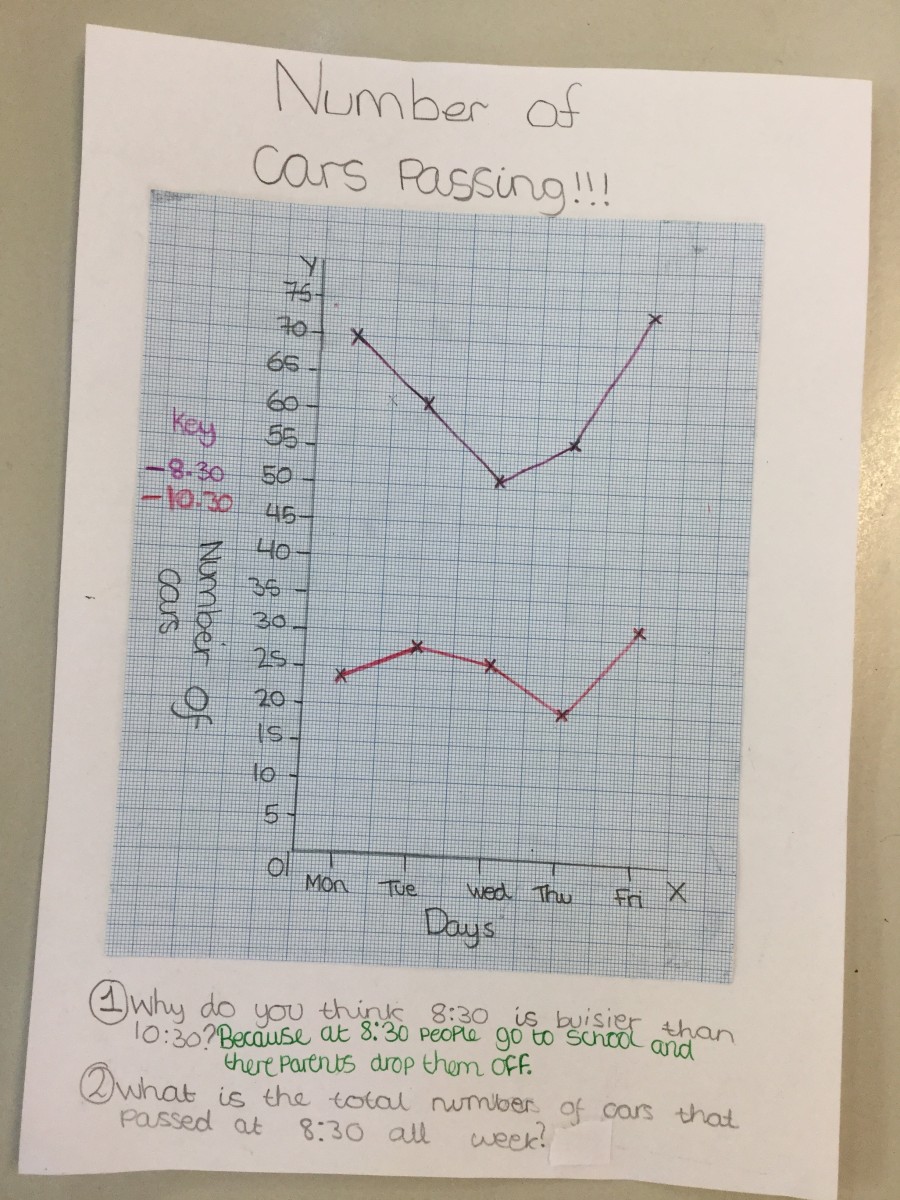 Number of
Cars Passing!!!
Y
75
70
65
60
55
50
45
40
35
30
25
20
15
10
5
0
Key
-8.30
-10.30
Number of
cars
Mon Tue Wed Thu Fri X
Days
① Why do you think 8:30 is buisier than
10:30? Because at 8:30 people go to school and
there parents drop them off.
② What is the total number of cars that
passed at 8:30 all week?